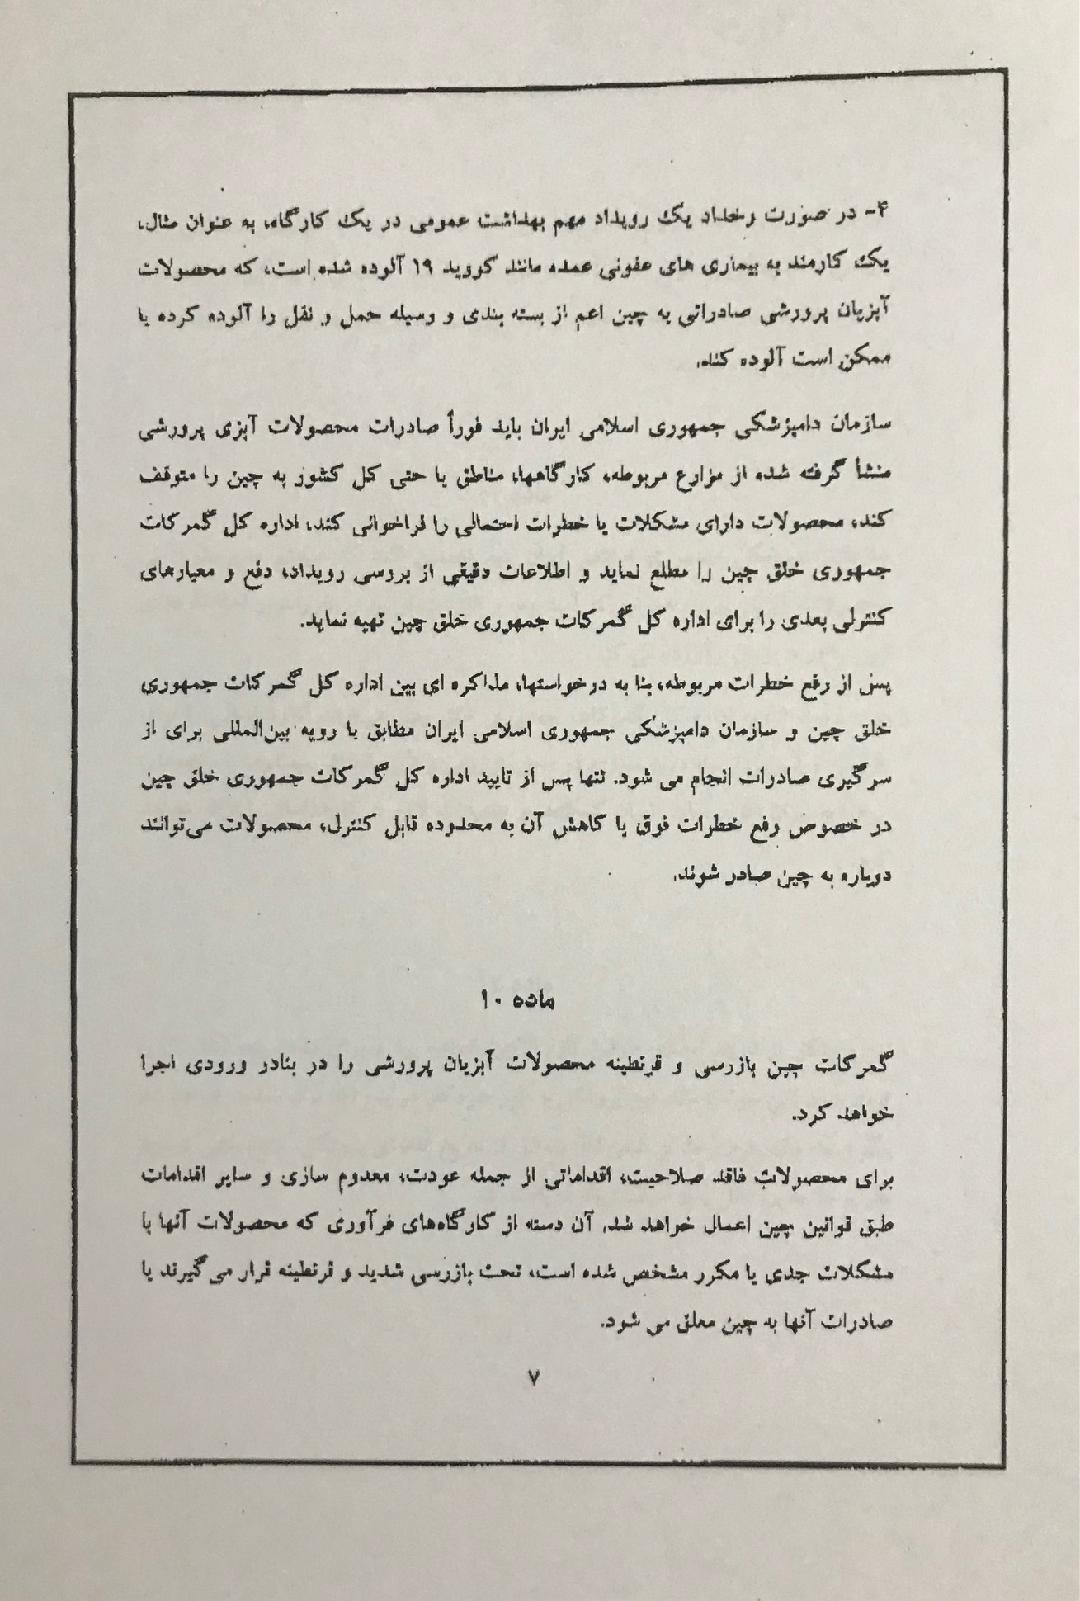 ۴- در صورت رخداد یک رویداد مهم بهداشت عمومی در یک کارگاه، به عنوان مثال،
یک کارمند به بیماری های عفونی عمده مانند کووید ۱۹ آلوده شده است، که محصولات
آبزیان پرورشی صادراتی به چین اعم از بسته بندی و وسیله حمل و نقل را آلوده کرده یا
ممکن است آلوده کند.
سازمان دامپزشکی جمهوری اسلامی ایران باید فوراً صادرات محصولات آبزی پرورشی
منشأ گرفته شده از مزارع مربوطه، کارگاهها، مناطق یا حتی کل کشور به چین را متوقف
کند، محصولات دارای مشکلات یا خطرات احتمالی را فراخوانی کند، اداره کل گمرکات
جمهوری خلق چین را مطلع نماید و اطلاعات دقیقی از بررسی رویداد، دفع و معیارهای
کنترلی بعدی را برای اداره کل گمرکات جمهوری خلق چین تهیه نماید.
پس از رفع خطرات مربوطه، بنا به درخواستها، مذاکره ای بین اداره کل گمرکات جمهوری
خلق چین و سازمان دامپزشکی جمهوری اسلامی ایران مطابق با رویه بین‌المللی برای از
سرگیری صادرات انجام می شود. تنها پس از تایید اداره کل گمرکات جمهوری خلق چین
در خصوص رفع خطرات فوق یا کاهش آن به محدوده قابل کنترل، محصولات می‌توانند
دوباره به چین صادر شوند.
ماده ۱۰
گمرکات چین بازرسی و قرنطینه محصولات آبزیان پرورشی را در بنادر ورودی اجرا
خواهد کرد.
برای محصولات فاقد صلاحیت، اقداماتی از جمله عودت، معدوم سازی و سایر اقدامات
طبق قوانین چین اعمال خواهد شد. آن دسته از کارگاه‌های فرآوری که محصولات آنها با
مشکلات جدی یا مکرر مشخص شده است، تحت بازرسی شدید و قرنطینه قرار می گیرند یا
صادرات آنها به چین معلق می شود.
۷